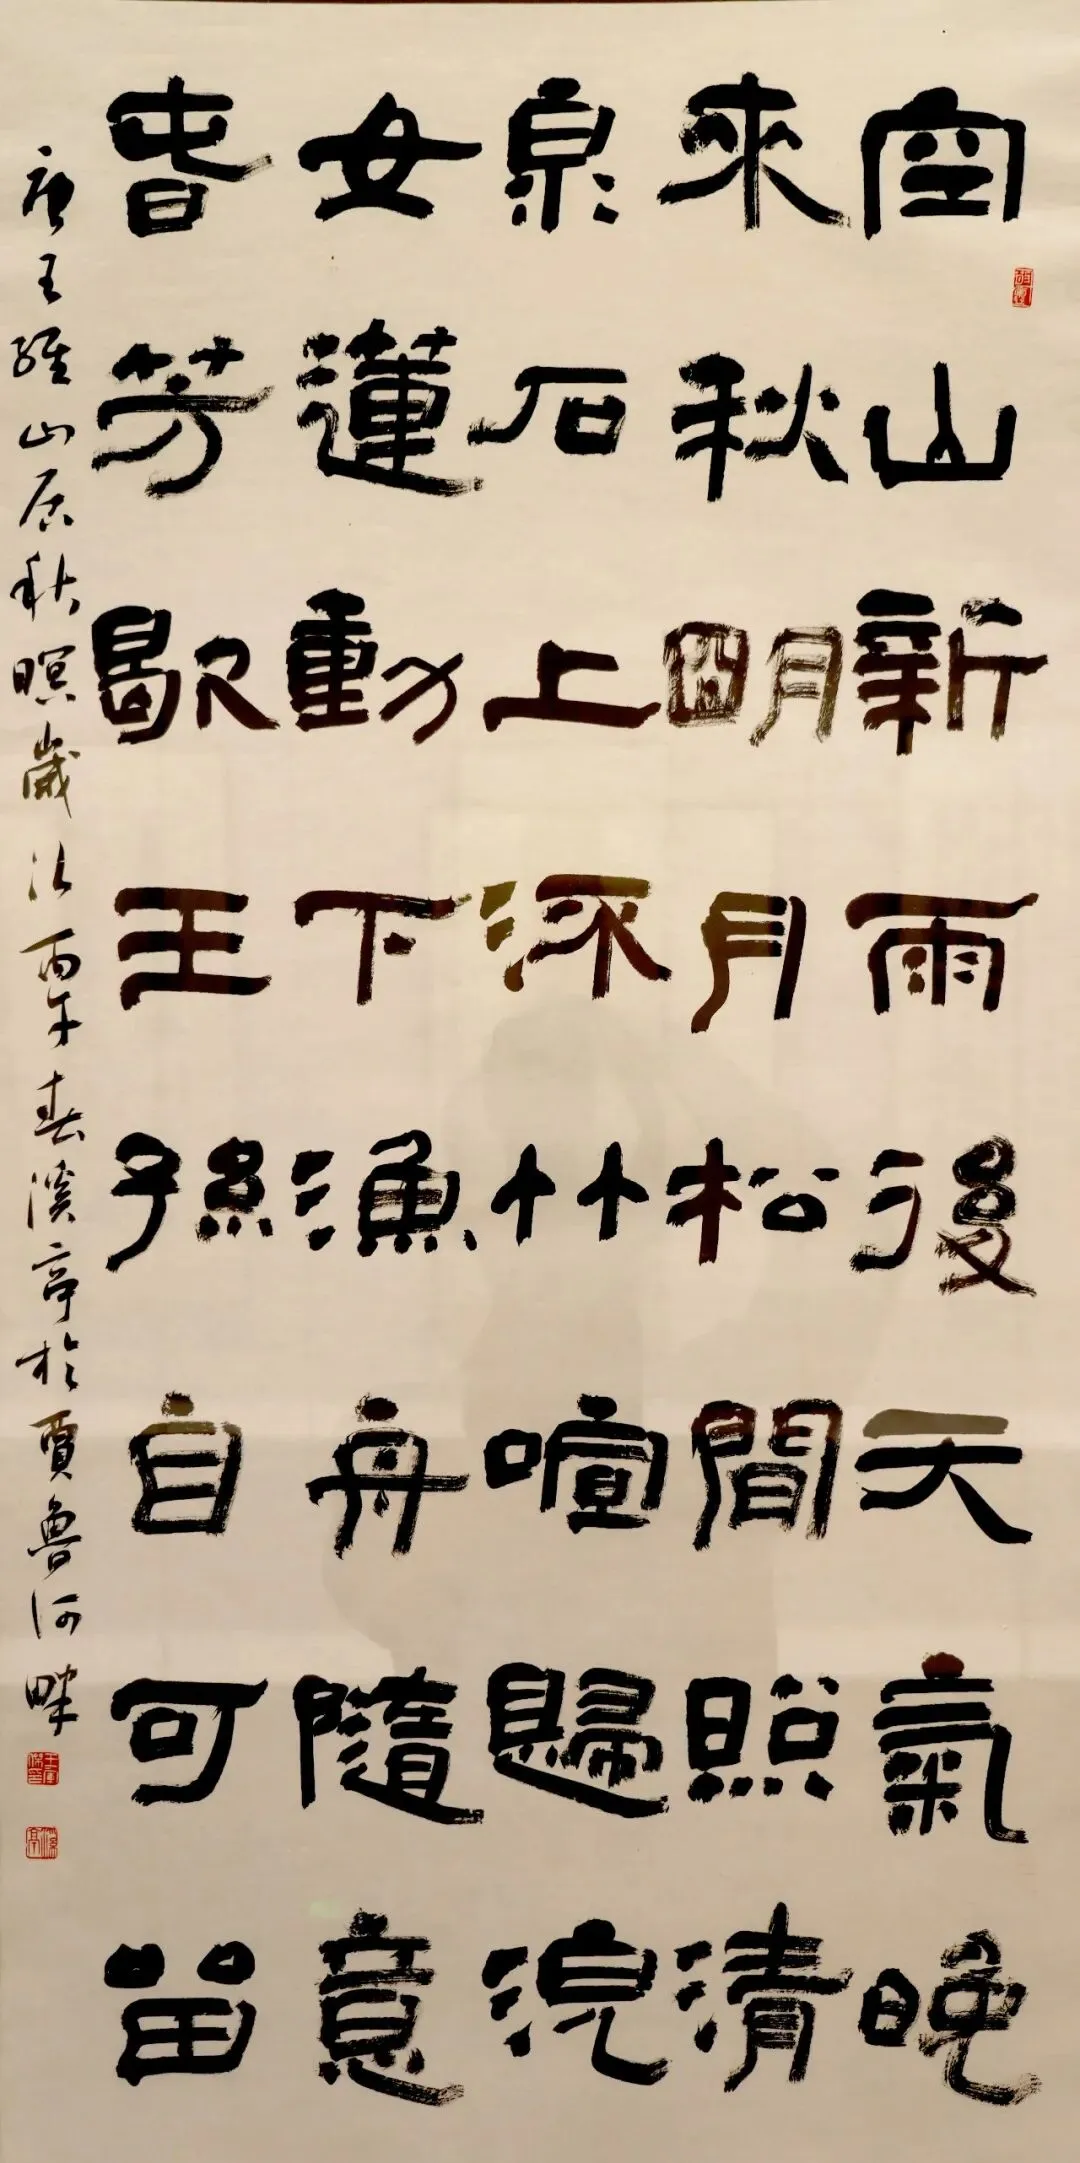 空山新雨後天氣晚
來秋明月松間照清
泉石上流竹喧歸浣
女蓮動下漁舟隨意
春芳歇王孫自可留
唐王維山居秋暝歲次丙午春溪亭於賈魯河畔
溪亭